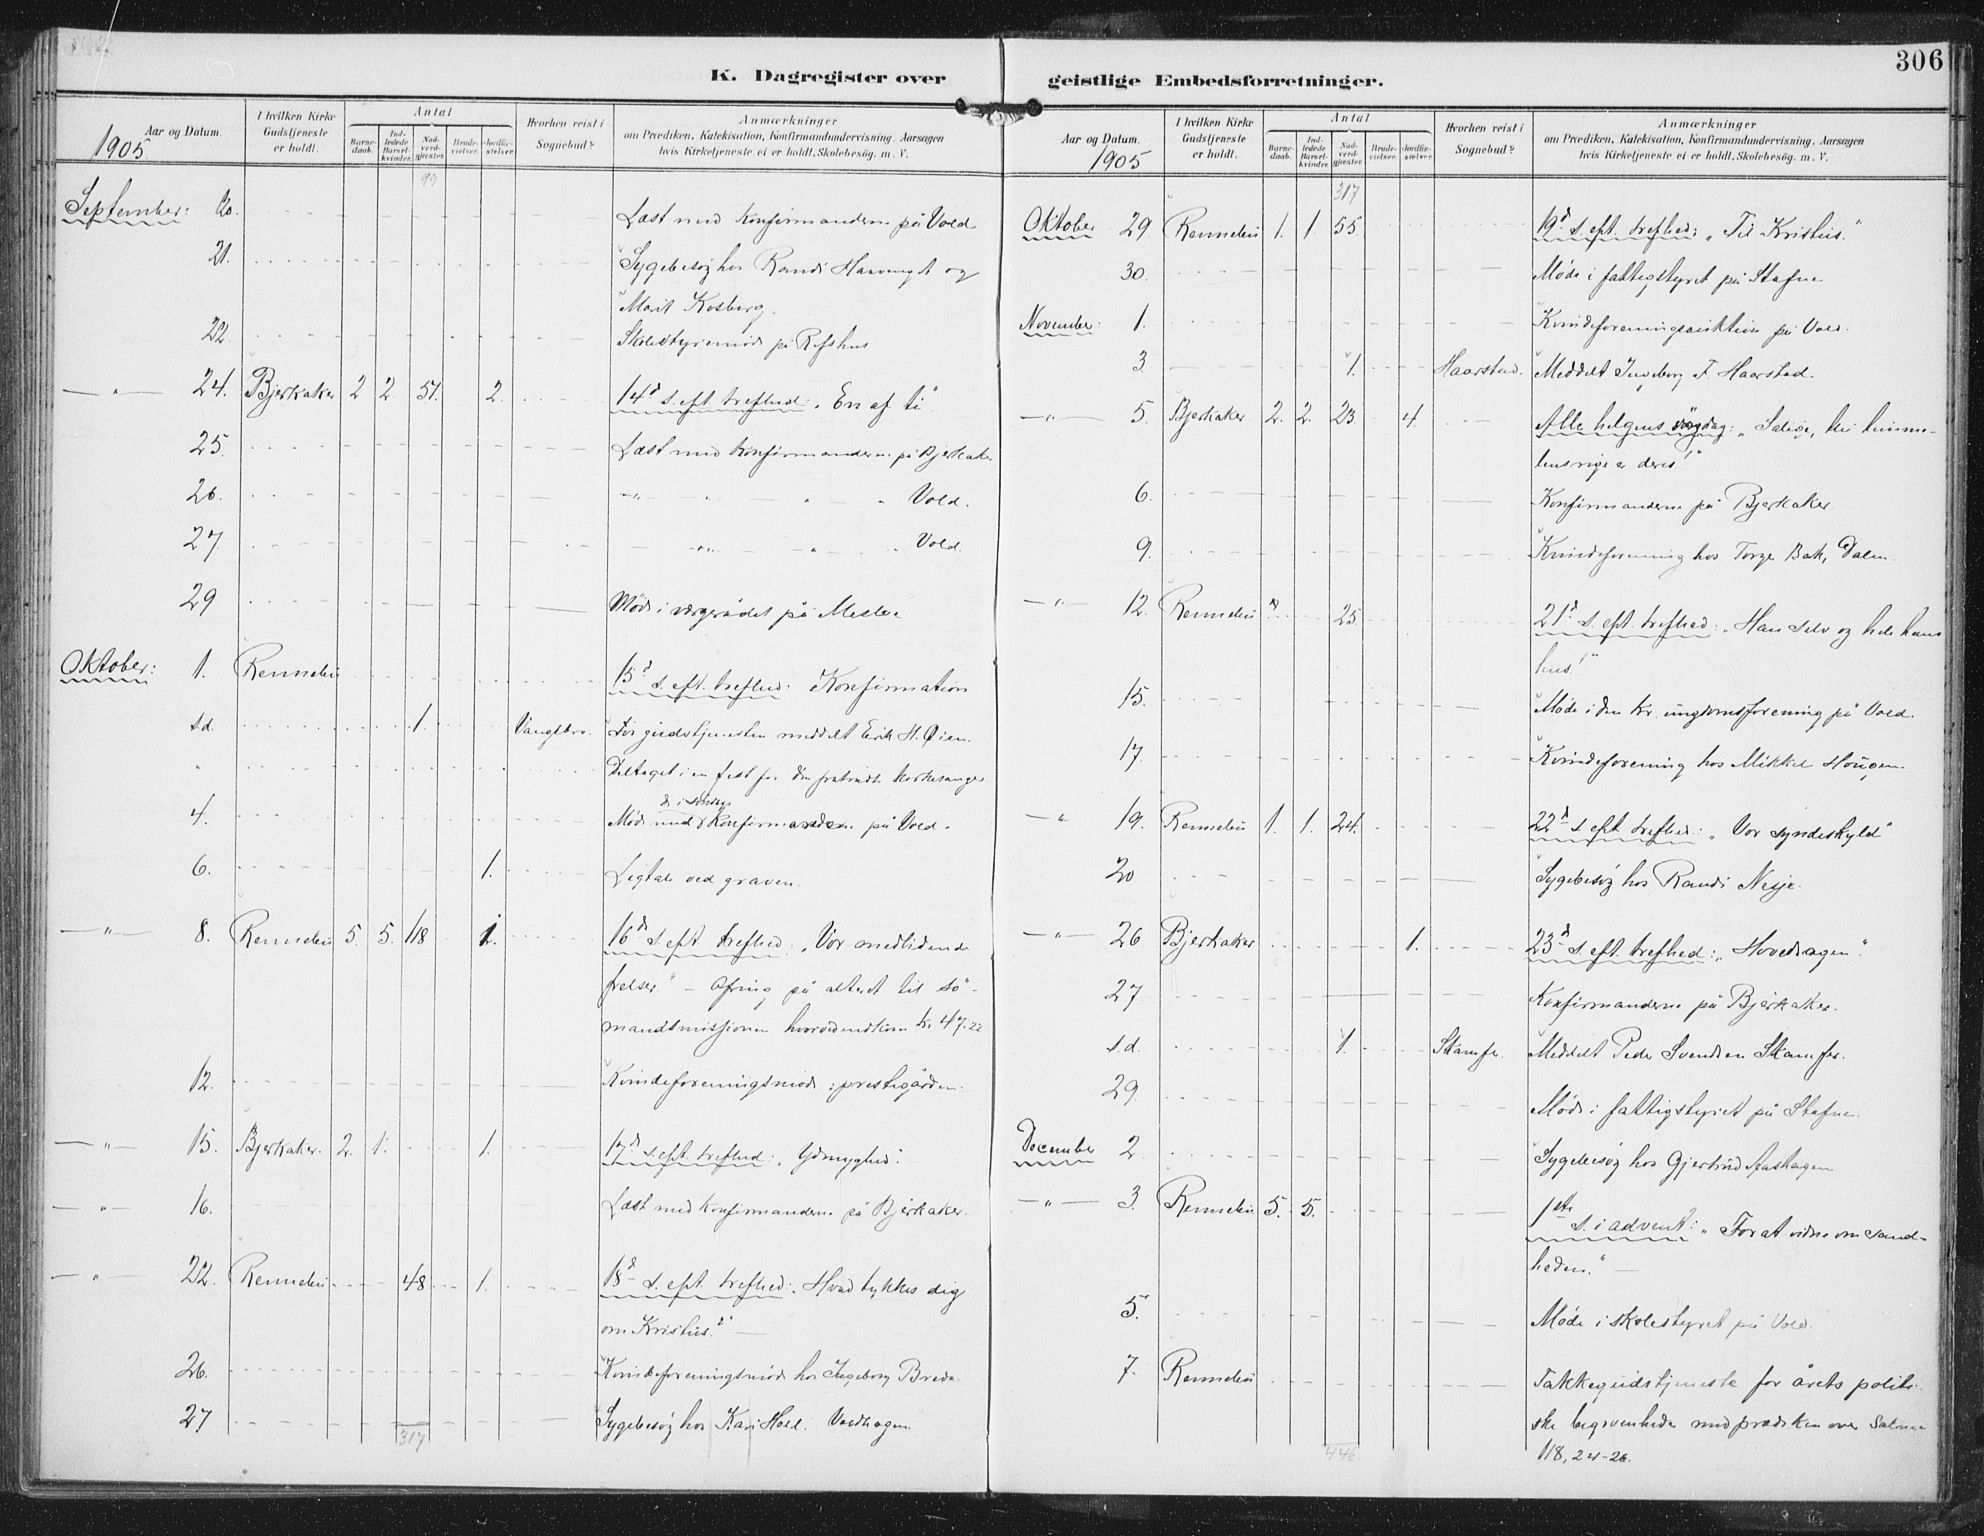 306
K. Dagregister over geistlige Embedsforretninger.
Aar og Datum. 1905
I hvilken Kirke Gudstjeneste er holdt.
Antal
Barnedaab.
Indledede Barselkvinder.
Nadverdgjester.
Brudevielser.
Jordfæstelser.
Hvorhen reist i Sognebud?
Anmærkninger
om Prædiken, Katekisation, Konfirmandundervisning. Aarsagen
hvis Kirketjeneste ei er holdt. Skolebesøg. m. V.
September: 20. Læst med konfirmanderne på Vold
21. Sygebesøg hos Randi Havengt og
Marit Kosberg.
22. Skolestyremøde på Refshus
— " — 24. Bjerkaker 2 2 51. 2. 14d s. eft. trefhed: "En af ti".
25. Læst med konfirmanderne på Bjerkaker
26. — " — " " Vold.
27. — " — " " Vold.
29 Møde i værgerådet på Meslo
Oktober: 1. Rennebu 15d s. eft. trefhed: Konfirmation
s.d. 1. Vangsbro. Før gudstjenesten meddelt Erik H. Øien.
" Deltaget i en fest for den fratrædte kirkesanger
4. Møde med konfirmanderne på Vold.
6. 1. Ligtale ved graven.
— " — 8. Rennebu 5. 5. 118 1. 16d s. eft. trefhed: "Vor medlidende
frelser." – Ofring på alteret til sø-
mandsmissionen hvorved indkom kr. 47.22
12. Kvindeforeningsmøde i prestegården.
— " — 15. Bjerkaker. 2. 1. 1. 17d s. eft. trefhed: "Ydmyghed".
— " — 16. Læst med konfirmanderne på Bjerkaker.
— " — 22. Rennebu 48 1. 18d s. eft. trefhed: "Hvad tykkes dig
om Kristus?" —
26. Kvindeforeningsmøde hos Ingeborg Brede.
27 Sygebesøg hos Kari Hoel. Voldhagen
317
Aar og Datum. 1905
I hvilken Kirke Gudstjeneste er holdt.
Antal
Barnedaab.
Indledede Barselkvinder.
Nadverdgjester.
Brudevielser.
Jordfæstelser.
Hvorhen reist i Sognebud?
Anmærkninger
om Prædiken, Katekisation, Konfirmandundervisning. Aarsagen
hvis Kirketjeneste ei er holdt. Skolebesøg. m. V.
317
Oktober 29. Rennebu 1. 1. 55 19d s. eft. trefhed: "Til Kristus."
30. Møde i fattigstyret på Stafne
November: 1. Kvindeforeningsauktion på Vold.
3 1. Haarstad. Meddelt Ingeborg F. Haarstad.
— " — 5. Bjerkaker 2. 2. 23. 4. Alle helgens dag: "Salige, thi himme-
lens rige er deres!"
6. Konfirmanderne på Bjerkaker.
9. Kvindeforening hos Torge Bak, Dalen
— " — 12. Rennebu 25. 21d s. eft. trefhed: "Han selv og hele hans
hus!"
15. Møde i den kr. ungdomsforening på Vold.
17. Kvindeforening hos Mikkel Hougen
— " 19. Rennebu 1. 1. 24. 22d s. eft. trefhed: "Vor syndeskyld"
20 Sygebesøg hos Randi Nesje.
— " — 26 Bjerkaker 1. 23d s. eft. trefhed: "Hovedsagen".
27 Konfirmanderne på Bjerkaker.
s.d. 1. Skamfer. Meddelt Peder Svendsen Skamfer.
29 Møde i fattigstyret på Stafne.
December 2. Sygebesøg hos Gjertrud Aashagen
— " — 3. Rennebu 5. 5. 1ste s. i advent: "For at vidne om sand-
heden." —
5. Møde i skolestyret på Vold.
7. Rennebu Takkegudstjeneste for årets politi-
ske begivenheder med prædiken over Salme
118, 24-26.
446.